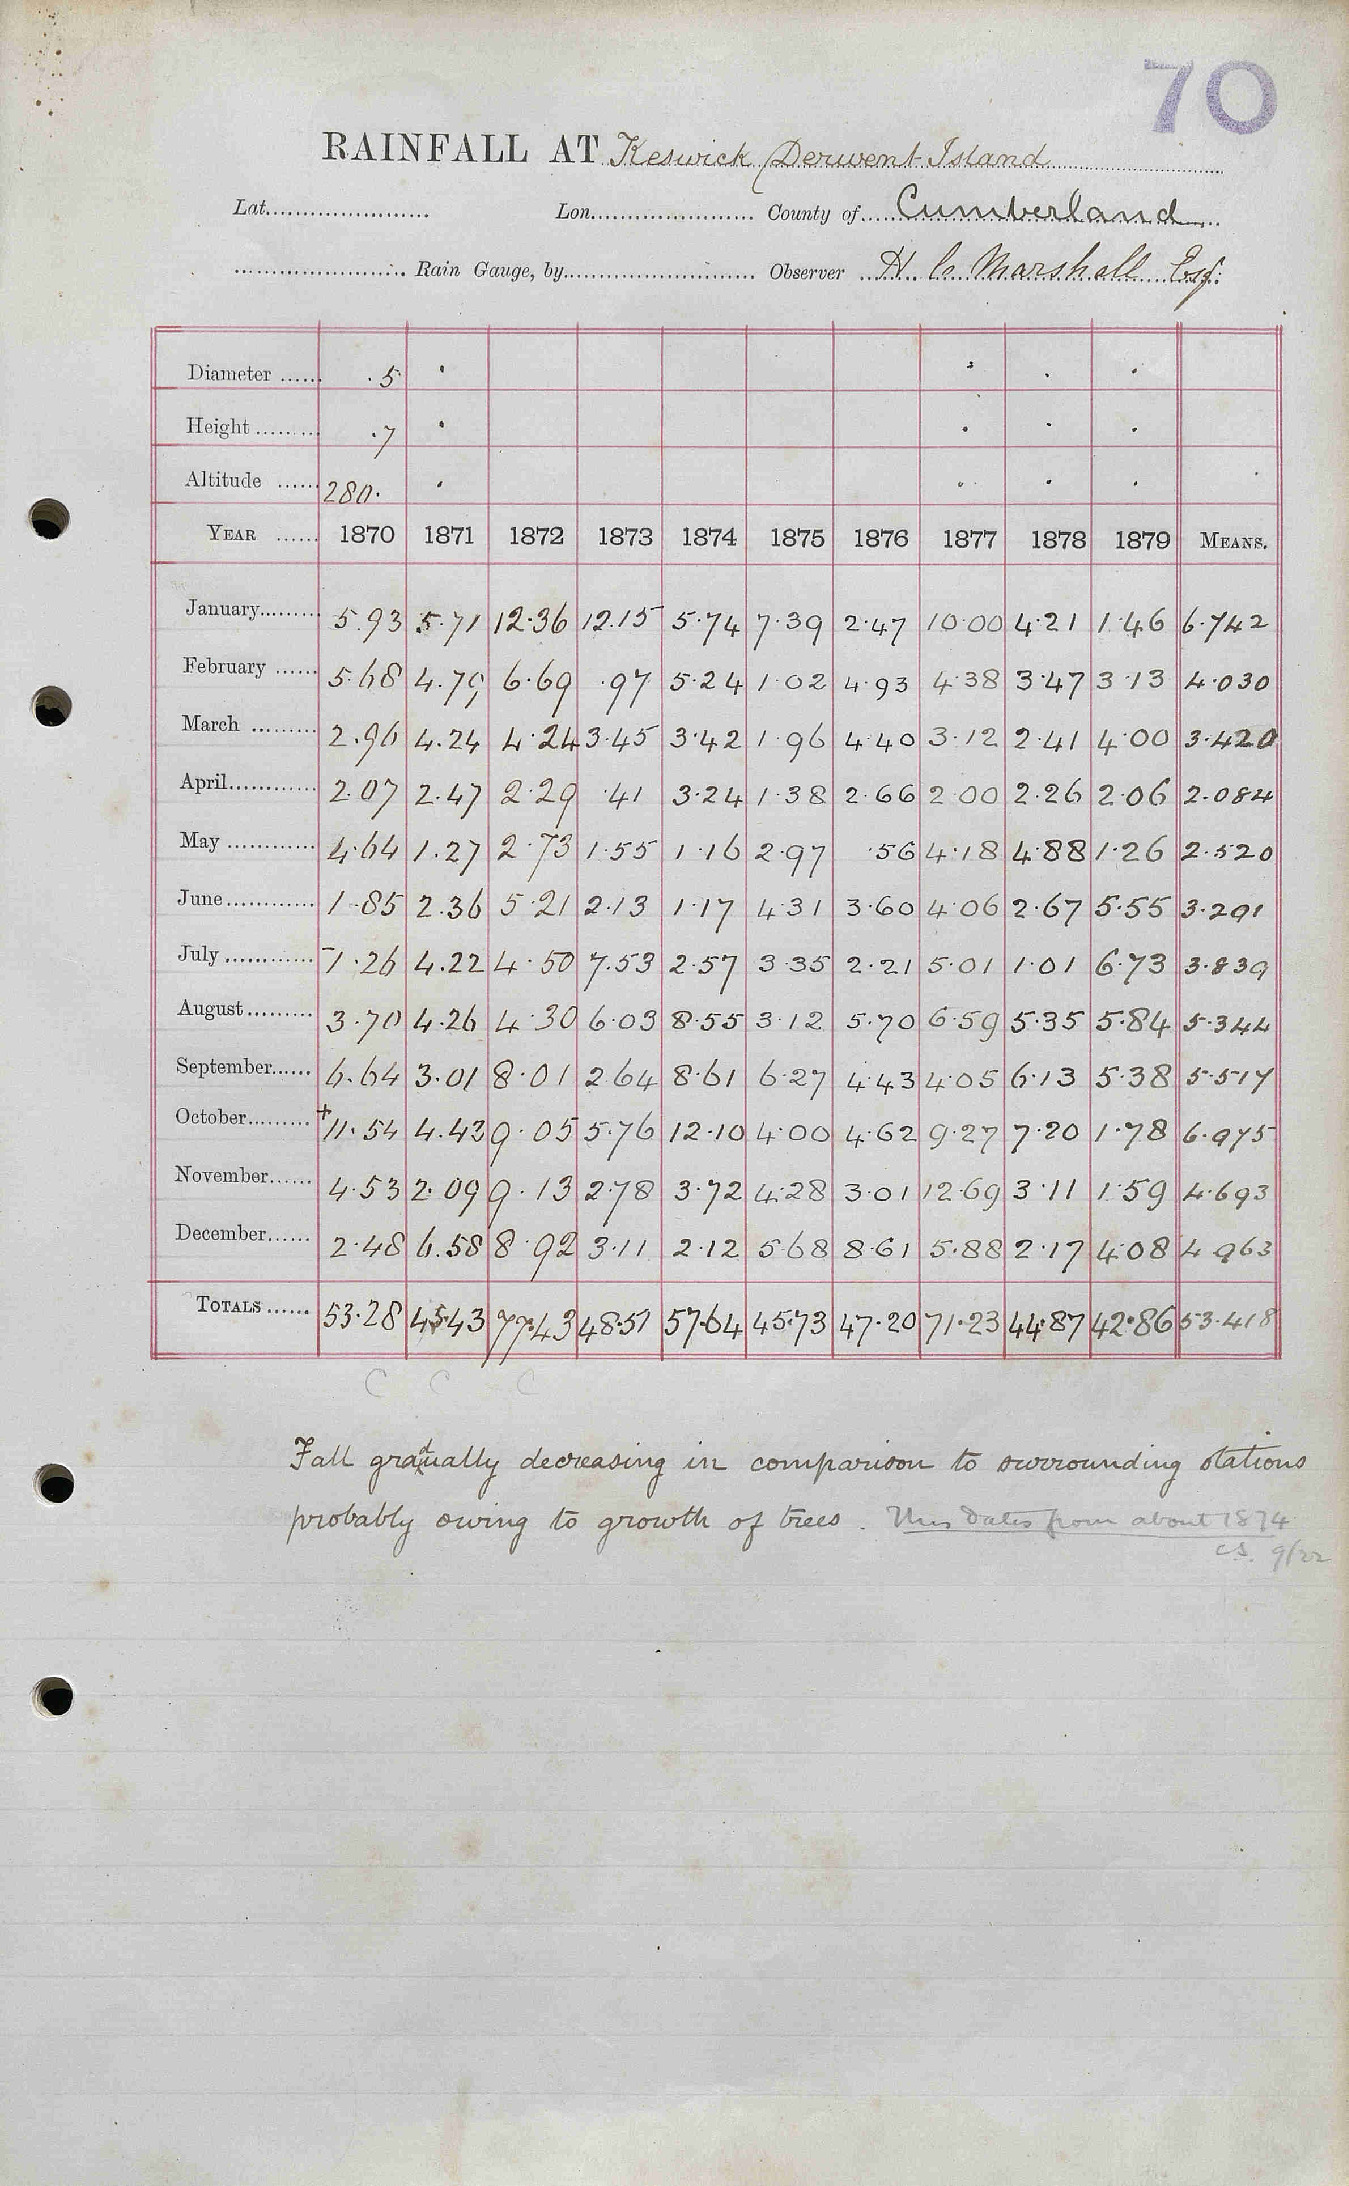 70
RAINFALL AT Keswick (Derwent Island
Lat. Lon. County of Cumberland
Rain Gauge, by Observer H C Marshall Esq:
Diameter ...... .5
Height ......... .7
Altitude ...... 280.
YEAR ...... 1870 1871 1872 1873 1874 1875 1876 1877 1878 1879 MEANS.
January......... 5.93 5.71 12.36 12.15 5.74 7.39 2.47 10.00 4.21 1.46 6.742
February ...... 5.68 4.79 6.69 .97 5.24 1.02 4.93 4.38 3.47 3.13 4.030
March ......... 2.96 4.24 4.24 3.45 3.42 1.96 4.40 3.12 2.41 4.00 3.420
April............ 2.07 2.47 2.29 .41 3.24 1.38 2.66 2.00 2.26 2.06 2.084
May ............ 4.64 1.27 2.73 1.55 1.16 2.97 .56 4.18 4.88 1.26 2.520
June............ 1.85 2.36 5.21 2.13 1.17 4.31 3.60 4.06 2.67 5.55 3.291
July ............ -1.26 4.22 4.50 7.53 2.57 3.35 2.21 5.01 1.01 6.73 3.839
August......... 3.70 4.26 4.30 6.03 8.55 3.12 5.70 6.59 5.35 5.84 5.344
September...... 6.64 3.01 8.01 2.64 8.61 6.27 4.43 4.05 6.13 5.38 5.517
October......... +11.54 4.43 9.05 5.76 12.10 4.00 4.62 9.27 7.20 1.78 6.975
November...... 4.53 2.09 9.13 2.78 3.72 4.28 3.01 12.69 3.11 1.59 4.693
December...... 2.48 6.58 8.92 3.11 2.12 5.68 8.61 5.88 2.17 4.08 4.963
TOTALS ...... 53.28 45.43 77.43 48.51 57.64 45.73 47.20 71.23 44.87 42.86 53.418
C C C
Fall gradually decreasing in comparison to surrounding stations
probably owing to growth of trees. This dates from about 1874
CS. 9/22